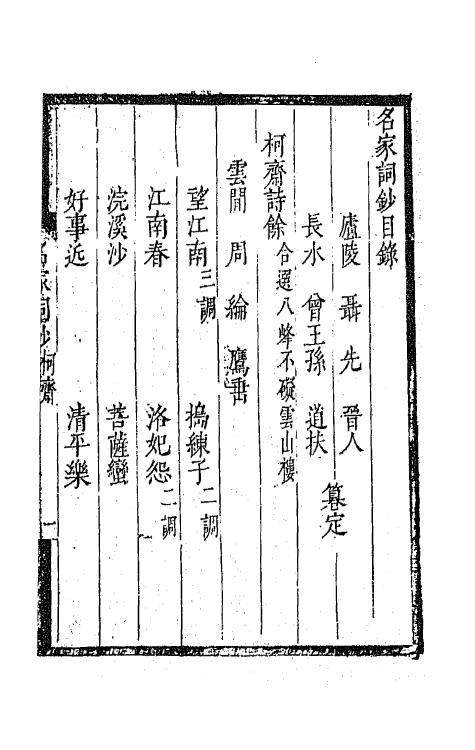 名家詞鈔目錄
廬陵　聶　先　晉人
長水　曾王孫　道扶
篹定
柯齋詩餘　合選八峰不礙雲山樓
雲間　周　綸　鷹垂
望江南三調　搗練子二調
江南春　洛妃怨二調
浣溪沙　菩薩蠻
好事近　清平樂
名家詞鈔柯齋　一